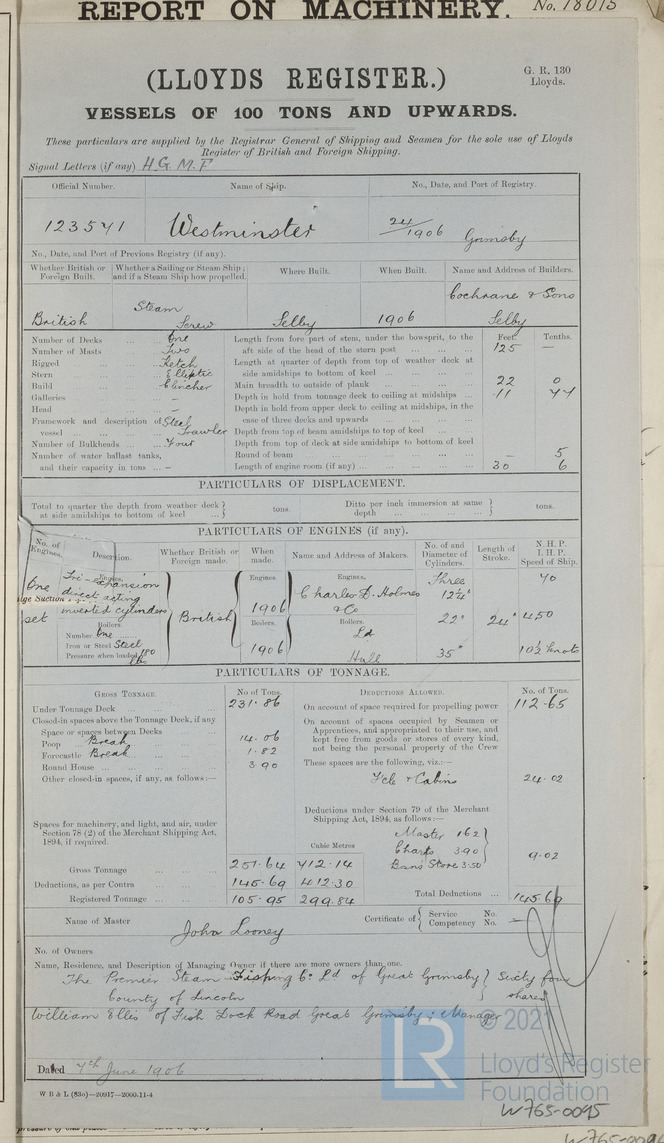 REPORT ON MACHINERY. No. 18015
(LLOYDS REGISTER.)
G. R. 130
Lloyds.
VESSELS OF 100 TONS AND UPWARDS.
These particulars are supplied by the Registrar General of Shipping and Seamen for the sole use of Lloyds
Register of British and Foreign Shipping.
Signal Letters (if any) H.G.M.F
Official Number. Name of Ship. No., Date, and Port of Registry.
123541 Westminster 24/1906 Grimsby
No., Date, and Port of Previous Registry (if any).
Whether British or Foreign Built. Whether a Sailing or Steam Ship; and if a Steam Ship how propelled. Where Built. When Built. Name and Address of Builders.
British Steam Screw Selby 1906 Cochrane & Sons Selby
Number of Decks One
Number of Masts Two
Rigged Ketch
Stern Elliptic
Build Clincher
Galleries –
Head –
Framework and description of vessel Steel Trawler
Number of Bulkheads Four
Number of water ballast tanks, and their capacity in tons –
Feet. Tenths.
Length from fore part of stem, under the bowsprit, to the aft side of the head of the stern post 125 –
Length at quarter of depth from top of weather deck at side amidships to bottom of keel
Main breadth to outside of plank 22 0
Depth in hold from tonnage deck to ceiling at midships 11 44
Depth in hold from upper deck to ceiling at midships, in the case of three decks and upwards
Depth from top of beam amidships to top of keel
Depth from top of deck at side amidships to bottom of keel
Round of beam – 5
Length of engine room (if any) 30 6
PARTICULARS OF DISPLACEMENT.
Total to quarter the depth from weather deck at side amidships to bottom of keel tons. Ditto per inch immersion at same depth tons.
PARTICULARS OF ENGINES (if any).
No. of Engines. Description. Whether British or Foreign made. When made. Name and Address of Makers. No. of and Diameter of Cylinders. Length of Stroke. N. H. P. I. H. P. Speed of Ship.
One set
Engines.
Tri-expansion
direct acting
inverted cylinders
Boilers.
Number One
Iron or Steel Steel
Pressure when loaded 180 lbs
British
Engines. 1906
Boilers. 1906
Engines.
Charles D. Holmes
& Co
Boilers.
Ld
Hull
Three
12¼"
22"
35"
24"
70
450
10½ knots
ge Suction
PARTICULARS OF TONNAGE.
GROSS TONNAGE. No of Tons.
Under Tonnage Deck 231.86
Closed-in spaces above the Tonnage Deck, if any
Space or spaces between Decks
Poop Break 14.06
Forecastle Break 1.82
Round House 3.90
Other closed-in spaces, if any, as follows:—
Spaces for machinery, and light, and air, under
Section 78 (2) of the Merchant Shipping Act,
1894, if required.
Cubic Metres
Gross Tonnage 251.64 712.14
Deductions, as per Contra 145.69 412.30
Registered Tonnage 105.95 299.84
DEDUCTIONS ALLOWED. No. of Tons.
On account of space required for propelling power 112.65
On account of spaces occupied by Seamen or
Apprentices, and appropriated to their use, and
kept free from goods or stores of every kind,
not being the personal property of the Crew
These spaces are the following, viz.:—
Fcle & Cabins 24.02
Deductions under Section 79 of the Merchant
Shipping Act, 1894, as follows:—
Master 1.62
Charts 3.90
Bosns Store 3.50
9.02
Total Deductions 145.69
Name of Master John Looney
Certificate of Service No. Competency No. –
No. of Owners
Name, Residence, and Description of Managing Owner if there are more owners than one.
The Premier Steam Fishing Co Ld of Great Grimsby Sixty four
County of Lincoln shares
William Ellis of Fish Dock Road Great Grimsby; Manager
Dated 7th June 1906
W B & L (83o)—20917—2000.11-4
LR © 2021
Lloyd's Register
Foundation
W765-0095